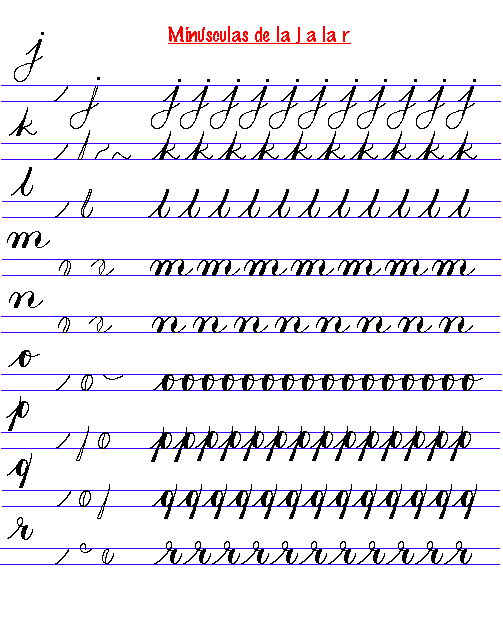 Minúsculas de la J a la r
j
j j j j j j j j j j j j
k
k k k k k k k k k k k
l
l l l l l l l l l l l l
m
m m m m m m m
n
n n n n n n n n
o
o o o o o o o o o o o o o o o o
p
p p p p p p p p p p p p p p
q
q q q q q q q q q q q q
r
r r r r r r r r r r r r